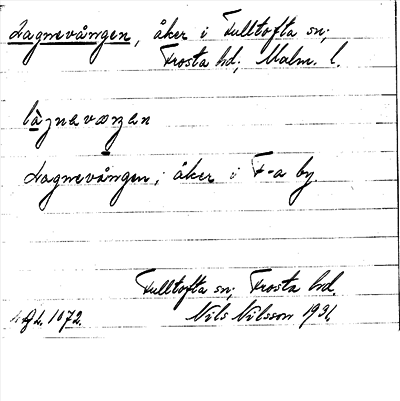 Lagnevången, åker i Fulltofta sn;
Frosta hd; Malm. l.
Lagnevången; åker i F-a by
Fulltofta sn; Frosta hd.
1072. Nils Nilsson 1931.